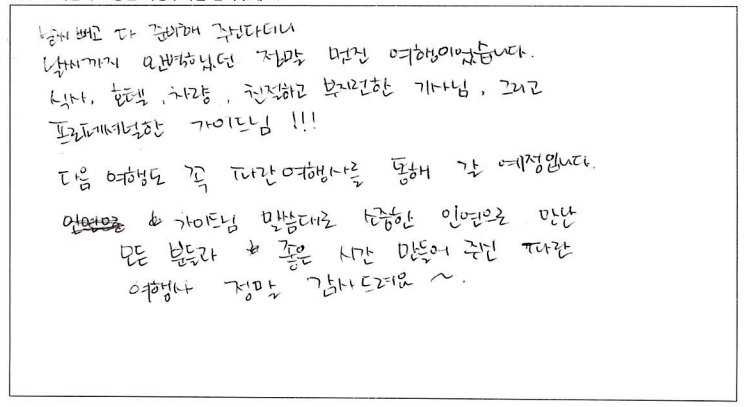 날씨 빼고 다 준비해 주신다더니
날씨까지 완벽했던 정말 멋진 여행이었습니다.
식사, 호텔, 차량, 친절하고 부지런한 기사님, 그리고
프로페셔널한 가이드님 !!!
다음 여행도 꼭 파란여행사를 통해 갈 예정입니다.
가이드님 말씀대로 소중한 인연으로 만난
모든 분들과 좋은 시간 만들어 주신 파란
여행사 정말 감사드려요 ~.